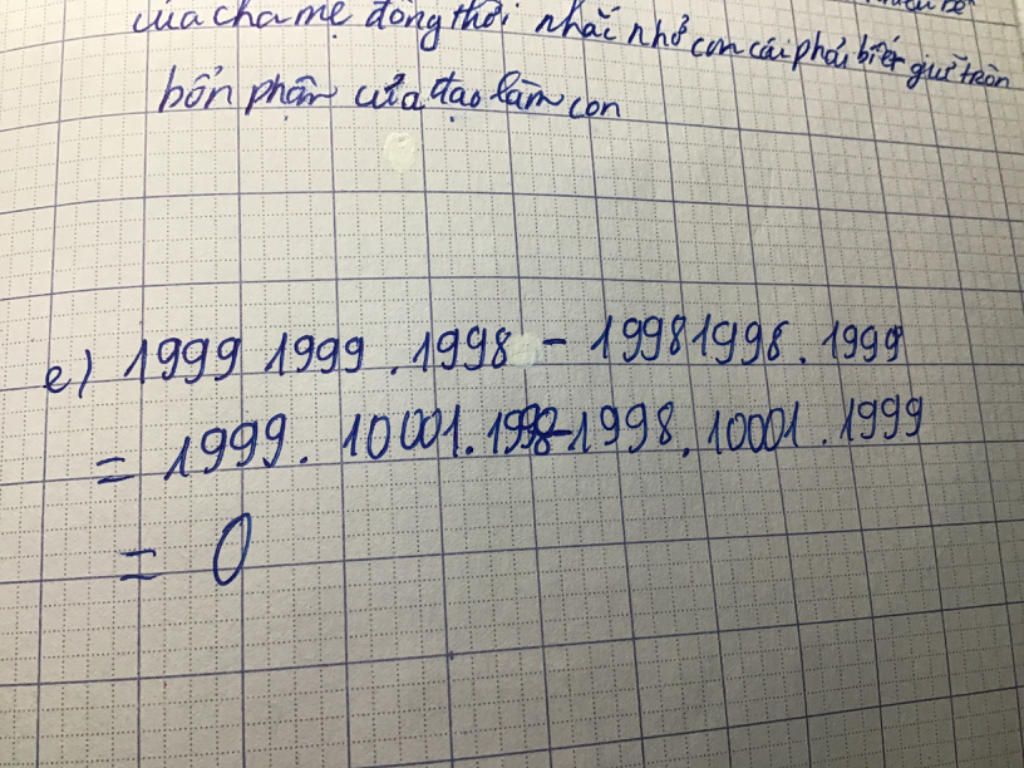 của cha mẹ đồng thời nhắc nhở con cái phải biết giữ tròn
bổn phận của đạo làm con
e) 1999 1999 . 1998 - 19981998 . 1999
= 1999 . 10001 . 1998 - 1998 . 10001 . 1999
= 0